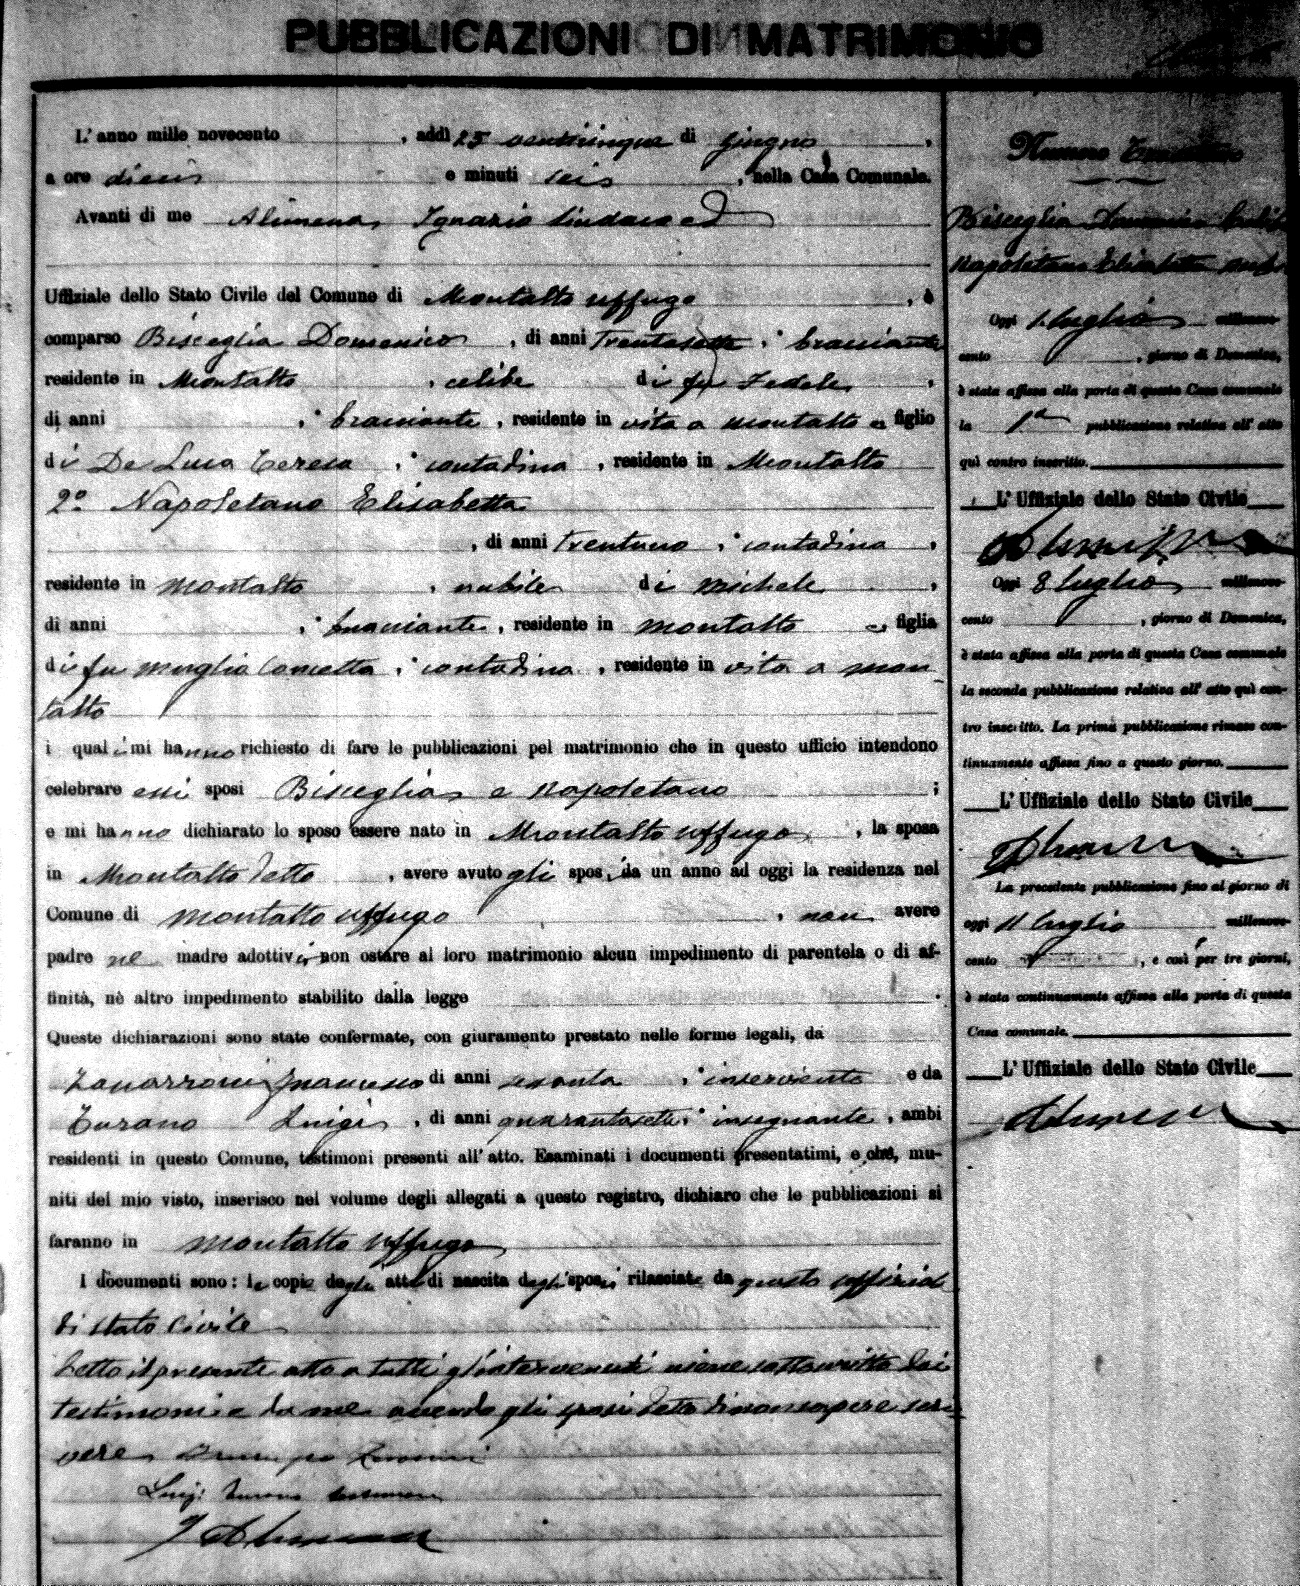 PUBBLICAZIONI DI MATRIMONIO
L'anno mille novecento , addì 25 venticinque di giugno ,
a ore dieci e minuti seis , nella Casa Comunale.
Avanti di me Alimena Ignazio Sindaco ed
Uffiziale dello Stato Civile del Comune di Montalto uffugo , è
comparso Bisceglia Domenico , di anni Trentasette , bracciante
residente in Montalto , celibe di fu Fedele ,
di anni , bracciante , residente in vita a Montalto e figlio
di De Luca Teresa , contadina , residente in Montalto
2º Napoletano Elisabetta
, di anni trentuno , contadina ,
residente in Montalto , nubile di Michele ,
di anni , bracciante , residente in Montalto e figlia
di fu Concetta , contadina , residente in vita a Mon-
talto
i quali mi hanno richiesto di fare le pubblicazioni pel matrimonio che in questo ufficio intendono
celebrare essi sposi Bisceglia e Napoletano ;
e mi hanno dichiarato lo sposo essere nato in Montalto uffugo , la sposa
in Montalto detto , avere avuto gli sposi da un anno ad oggi la residenza nel
Comune di Montalto uffugo , non avere
padre nè madre adottivi, non ostare al loro matrimonio alcun impedimento di parentela o di af-
finità, nè altro impedimento stabilito dalla legge .
Queste dichiarazioni sono state confermate, con giuramento prestato nelle forme legali, da
Francesco di anni sessanta , inserviente e da
Turano Luigi , di anni quarantasette , insegnante , ambi
residenti in questo Comune, testimoni presenti all'atto. Esaminati i documenti presentatimi, e che, mu-
niti del mio visto, inserisco nel volume degli allegati a questo registro, dichiaro che le pubblicazioni si
faranno in Montalto Uffugo
I documenti sono: le copie degli atti di nascita degli sposi rilasciate da questo uffizio
di stato Civile
Letto il presente atto a tutti gl'intervenuti viene sottoscritto dai
testimoni e da me avendo gli sposi detto di non sapere scri
vere
Luigi Turano testimone
I Alimena
Numero
Bisceglia Domenico celibe
Napoletano Elisabetta nubile
Oggi 1 luglio millenove-
cento , giorno di Domenica,
è stata affissa alla porta di questa Casa comunale
la 1ª pubblicazione relativa all'atto
quì contro inscritto.
L'Uffiziale dello Stato Civile
Alimena
Oggi 8 luglio millenove-
cento , giorno di Domenica,
è stata affissa alla porta di questa Casa comunale
la seconda pubblicazione relativa all'atto quì con-
tro inscritto. La prima pubblicazione rimase con-
tinuamente affissa fino a questo giorno.
L'Uffiziale dello Stato Civile
Alimena
La precedente pubblicazione fino al giorno di
oggi 11 luglio millenove-
cento , e così per tre giorni,
è stata continuamente affissa alla porta di questa
Casa comunale.
L'Uffiziale dello Stato Civile
Alimena